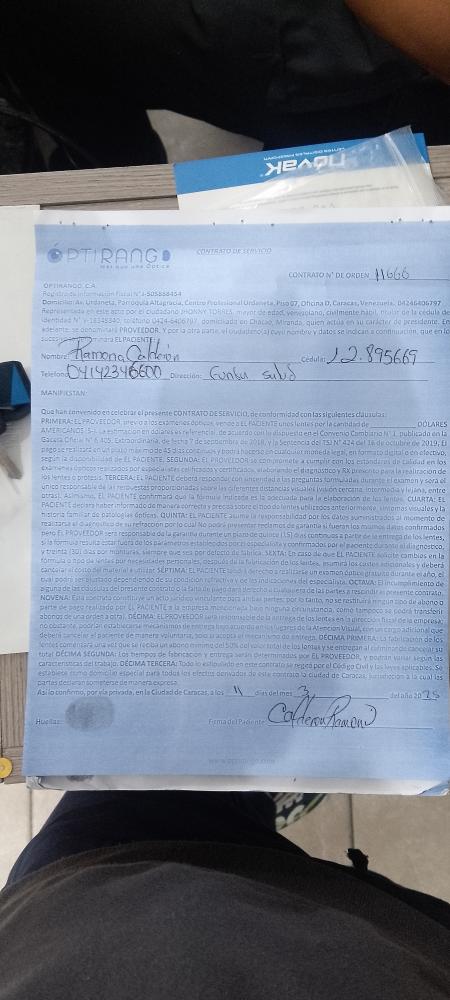 novak
LENTES DIGITALES FREEFORM
ÓPTIRANGO
Más que una Óptica
CONTRATO DE SERVICIO
CONTRATO N° DE ORDEN 11666
OPTIRANGO, C.A.
Registro de Información Fiscal N° J-505868454
Domicilio: Av. Urdaneta, Parroquia Altagracia, Centro Profesional Urdaneta, Piso 07, Oficina D, Caracas, Venezuela. 04246406797
Representada en este acto por el ciudadano JHONNY TORRES, mayor de edad, venezolano, civilmente hábil, titular de la cédula de
identidad N° V-18345340, teléfono 0424-6406797, domiciliada en Chacao, Miranda, quien actúa en su carácter de presidente. En
adelante, se denominará PROVEEDOR. Y por la otra parte, el ciudadano(a) cuyo nombre y datos se indican a continuación, que en lo
sucesivo se denominará EL PACIENTE
Nombre: Ramona Calderón Cédula: 12.895669
Teléfono: 04142346600 Dirección:
MANIFIESTAN:
Que han convenido en celebrar el presente CONTRATO DE SERVICIO, de conformidad con las siguientes cláusulas:
PRIMERA: EL PROVEEDOR, previo a los exámenes ópticos, vende a EL PACIENTE unos lentes por la cantidad de DÓLARES
AMERICANOS ($-). La estimación en dólares es referencial, de acuerdo con lo dispuesto en el Convenio Cambiario N°1, publicado en la
Gaceta Oficial N° 6.405, Extraordinaria, de fecha 7 de septiembre de 2018, y la Sentencia del TSJ N° 424 del 16 de octubre de 2019. El
pago se realizará en un plazo máximo de 45 días continuos y podrá hacerse en cualquier moneda legal, en formato digital o en efectivo,
según la disponibilidad de EL PACIENTE. SEGUNDA: EL PROVEEDOR se compromete a cumplir con los estándares de calidad en los
exámenes ópticos realizados por especialistas calificados y certificados, elaborando el diagnóstico y RX para la realización de
los lentes o prótesis. TERCERA: EL PACIENTE deberá responder con sinceridad a las preguntas formuladas durante el examen y será el
único responsable de las respuestas proporcionadas sobre las diferentes distancias visuales (visión cercana, intermedia y lejana, entre
otras). Asimismo, EL PACIENTE confirmará que la fórmula indicada es la adecuada para la elaboración de los lentes. CUARTA: EL
PACIENTE declara haber informado de manera correcta y precisa sobre el tipo de lentes utilizados anteriormente, síntomas visuales y la
historia familiar de patologías ópticas. QUINTA: EL PACIENTE asume la responsabilidad por los datos suministrados al momento de
realizarse el diagnóstico de su refracción por lo cual No podrá presentar reclamos de garantía si fueran los mismos datos confirmados
pero EL PROVEEDOR será responsable de la garantía durante un plazo de quince (15) días continuos a partir de la entrega de los lentes,
si la fórmula resulta estar fuera de los parámetros establecidos por el especialista y confirmados por el paciente durante el diagnóstico,
y treinta (30) días por monturas, siempre que sea por defecto de fábrica. SEXTA: En caso de que EL PACIENTE solicite cambios en la
fórmula o tipo de lentes por necesidades personales, después de la fabricación de los lentes, asumirá los costos adicionales y deberá
cancelar el nuevo material a utilizar. SÉPTIMA: EL PACIENTE tendrá derecho a realizarse un examen óptico gratuito durante el año, el
cual podrá ser dependiendo de las indicaciones del especialista. OCTAVA: El incumplimiento de
alguna de las cláusulas del presente contrato o la falta de pago dará derecho a cualquiera de las partes a rescindir el presente contrato.
NOVENA: Esta solicitud constituye un acto jurídico vinculante para ambas partes, por lo tanto, no se restituirá ningún tipo de abono o
parte de pago realizado por EL PACIENTE a la empresa mencionada bajo ninguna circunstancia, como tampoco se podrá transferir
abonos de una orden a otra. DÉCIMA: EL PROVEEDOR será responsable de la entrega de los lentes en la dirección fiscal de la empresa;
no obstante, podrán establecerse mecanismos de entrega bajo acuerdo en los lugares de la Atención Visual, con un cargo adicional que
deberá cancelar el paciente de manera voluntaria, si acepta el mecanismo de entrega. DÉCIMA PRIMERA: La fabricación de los
lentes comenzará una vez que se reciba un abono mínimo del 50% del valor total de los lentes y se entregan al culminar de cancelar su
total. DÉCIMA SEGUNDA: Los tiempos de fabricación y entrega serán determinados por EL PROVEEDOR, y podrán variar según las
características del trabajo. DÉCIMA TERCERA: Todo lo estipulado en este contrato se regirá por el Código Civil y las leyes aplicables. Se
establece como domicilio especial para todos los efectos derivados de este contrato la ciudad de Caracas, jurisdicción a la cual las
partes declaran someterse de manera expresa.
Así lo confirmo, por vía privada, en la Ciudad de Caracas, a los 11 días del mes 3 del año 2025
Huellas: Firma del Paciente: Calderon Ramona
www.optirango.com